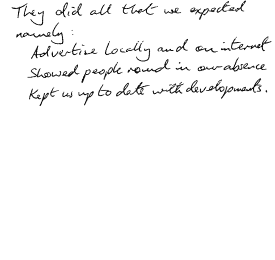 They did all that we expected
namely:
Advertise locally and on internet
Showed people round in our absence
Kept us up to date with developments.